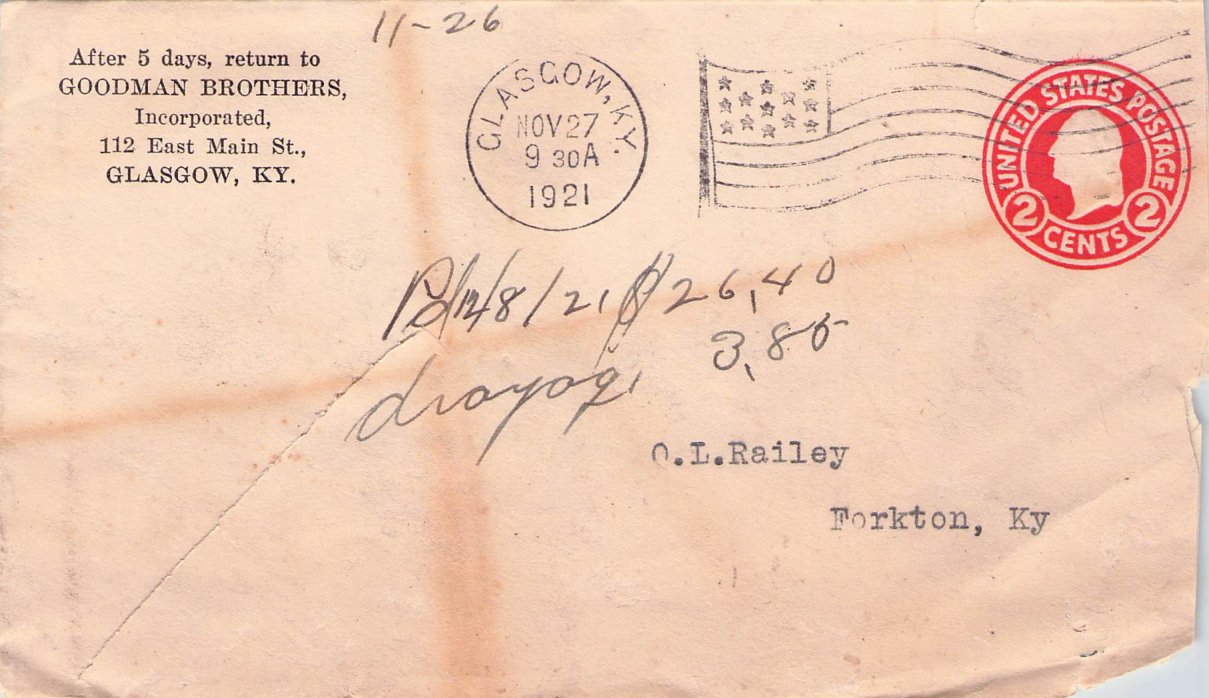 11-26
After 5 days, return to
GOODMAN BROTHERS,
Incorporated,
112 East Main St.,
GLASGOW, KY.
GLASGOW, KY.
NOV 27
9 30 A
1921
UNITED STATES POSTAGE
2 CENTS 2
Pd 12/8/21 $26.40
drayag. 3.85
O.L.Railey
Forkton, Ky